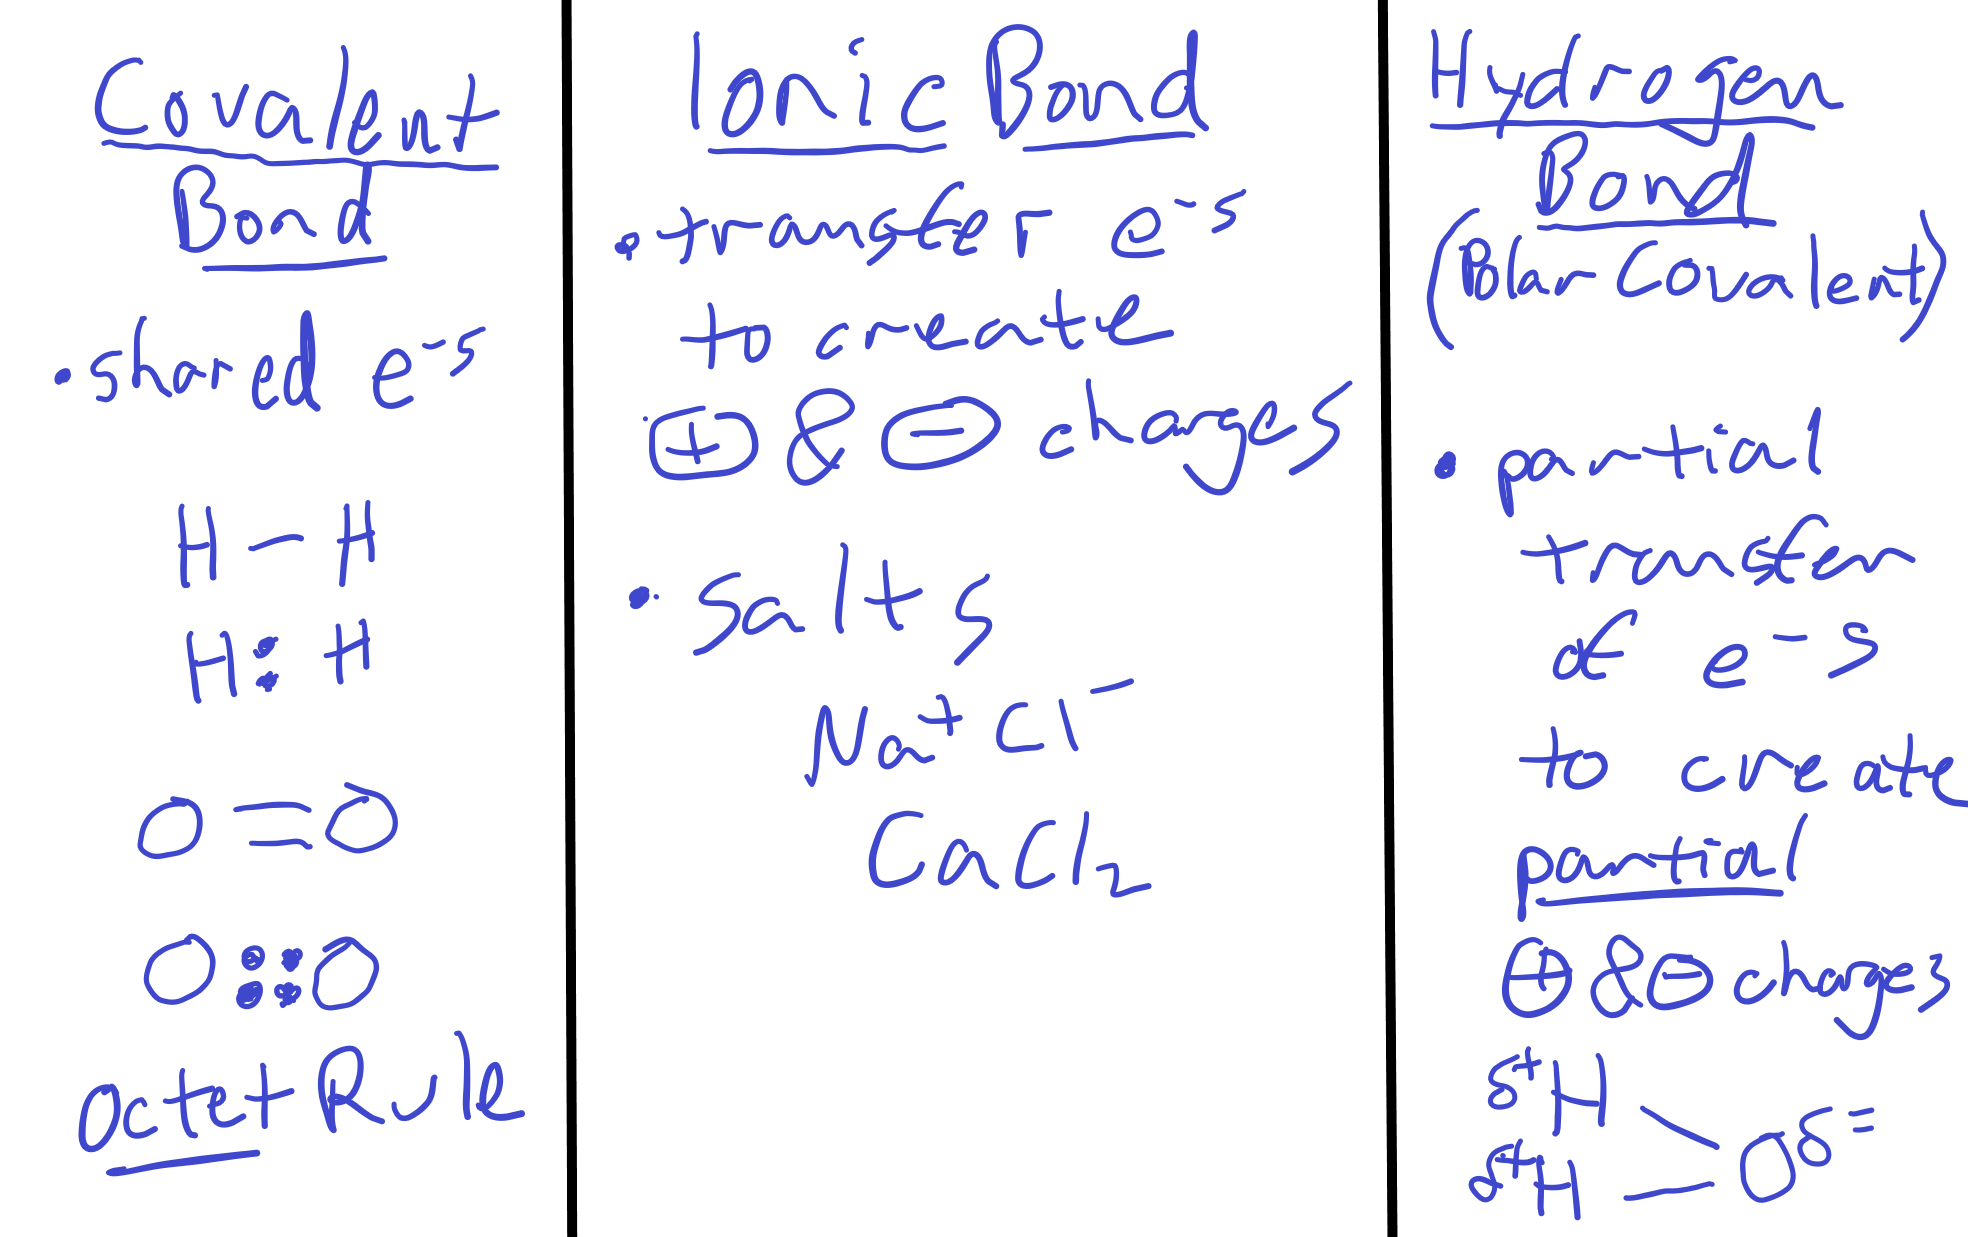 Covalent
Bond
• shared e⁻s
H — H
H : H
O = O
O :: O
Octet Rule
Ionic Bond
• transfer e⁻s
to create
⊕ & ⊖ charges
• Salts
Na⁺Cl⁻
CaCl₂
Hydrogen
Bond
(Polar Covalent)
• partial
transfer
of e⁻s
to create
partial
⊕ & ⊖ charges
δ⁺H
Oδ⁼
δ⁺H